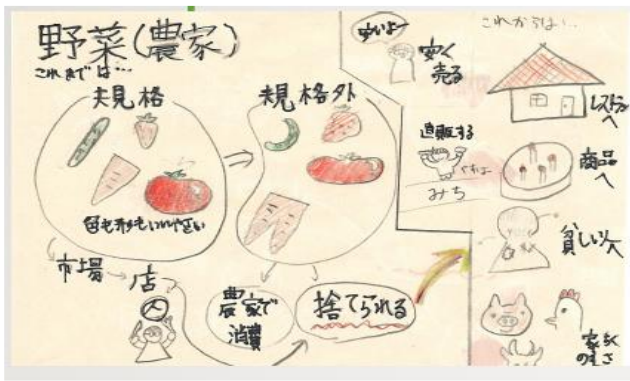 野菜(農家)
これまでは…
規格
色も形もいいやさい
規格外
市場
店
農家で
消費
捨てられる
安いよー
安く
売る
直販する
ですよ
みち
これからは…
レストラン
へ
商品
へ
貧しい人
家ちく
のえさ